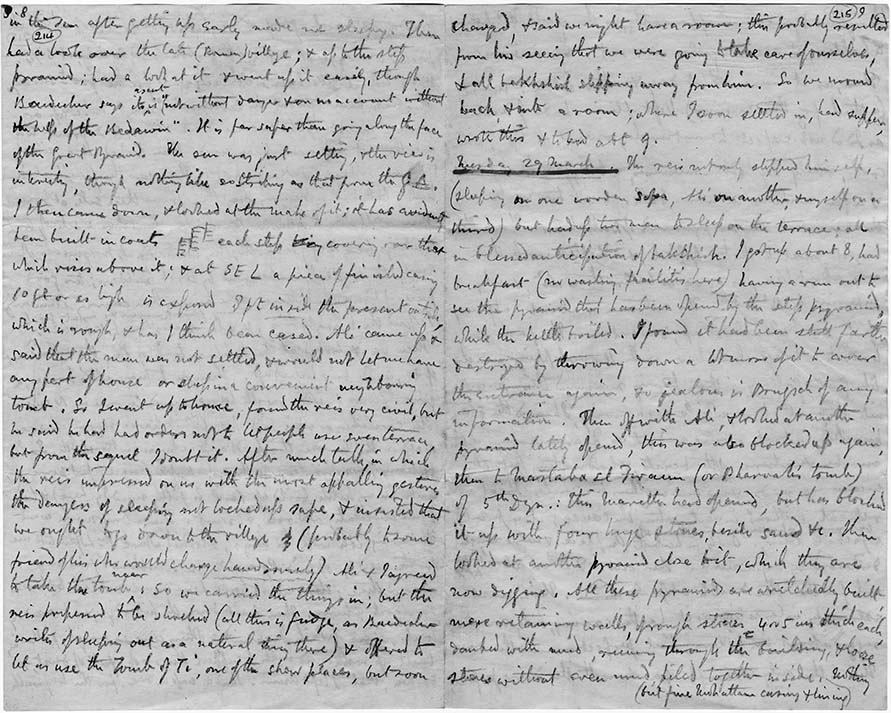 8
(214)
in the sun after getting up early made me sleepy. Then
had a look over the late (Roman) village; & up to the step
pyramid; had a look at it & went up it easily, though
Baedecker says ascent "is not without danger & on no account without
the help of the Bedawin". It is far safer than going along the face
of the Great Pyramid. The sun was just setting, & the view is
interesting, though nothing like so striking as that from the G.P.
I then came down, & looked at the make of it; it has evidently
been built in coats each step being covering over that
which rises above it; & at S E L a piece of finished casing
10 ft or so high is exposed ft inside the present outside,
which is rough, & has I think been cased. Ali came up &
said that the man was not settled, & would not let me have
any part of house or sleep in a convenient neighbouring
tomb. So I went up to house, found the reis very civil, but
he said he had had orders not to let people use even terrace,
but from the sequel I doubt it. After much talk in which
the reis impressed on us with the most appalling gestures
the dangers of sleeping not locked up safe, & insisted that
we ought to go down to the village (probably to some
friend of his who would charge handsomely) Ali & I agreed
to take the tomb near; so we carried the things in; but the
reis professed to be shocked (all this is fudge, as Baedecker
writes of sleeping out as a natural thing there) & offered to
let us use the Tomb of Ti, one of the show places, but soon
(215) 9
changed, & said we might have a room; this probably resulted
from his seeing that we were going to take care of ourselves,
& all bakhshish slipping away from him. So we moved
back, & into a room; where I soon settled in, had supper,
wrote this & to bed abt 9.
Tuesday 29 March. The reis not only stopped himself,
(sleeping on one wooden sofa, Ali on another & myself on a
third) but had up two men to sleep on the terrace; all
in blessed anticipation of bakshish. I got up about 8, had
breakfast (no washing facilities here) having a run out to
see the pyramid that has been opened by the step pyramid,
while the kettle boiled. I found it had been still further
destroyed by throwing down a lot more of it to cover
the entrance again, so jealous is Brugsch of any
information. Then off with Ali, & looked at another
pyramid lately opened, this was also blocked up again,
then to Mastaba el Firaun (or Pharoah's tomb)
of 5th Dyn.: this Mariette had opened, but has blocked
it up with four large stones, beside sand &c. Then
looked at another pyramid close to it, which they are
now digging. All these pyramids are wretchedly built
mere retaining walls, of rough stones 4 or 5 ins thick each,
daubed with mud, running through the building, & loose
stones without even mud piled together inside. Nothing
(but fine Mokattam casing & lining)